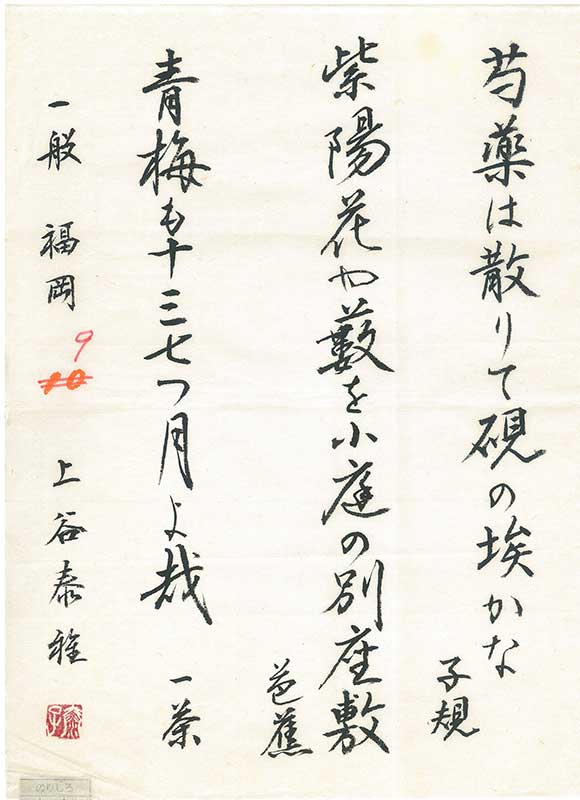 芍薬は散りて硯の埃かな
子規
紫陽花や藪を小庭の別座敷
芭蕉
青梅も十三七つ月よ哉
一茶
一般 福岡 9 10 上谷泰雅
のりしろ